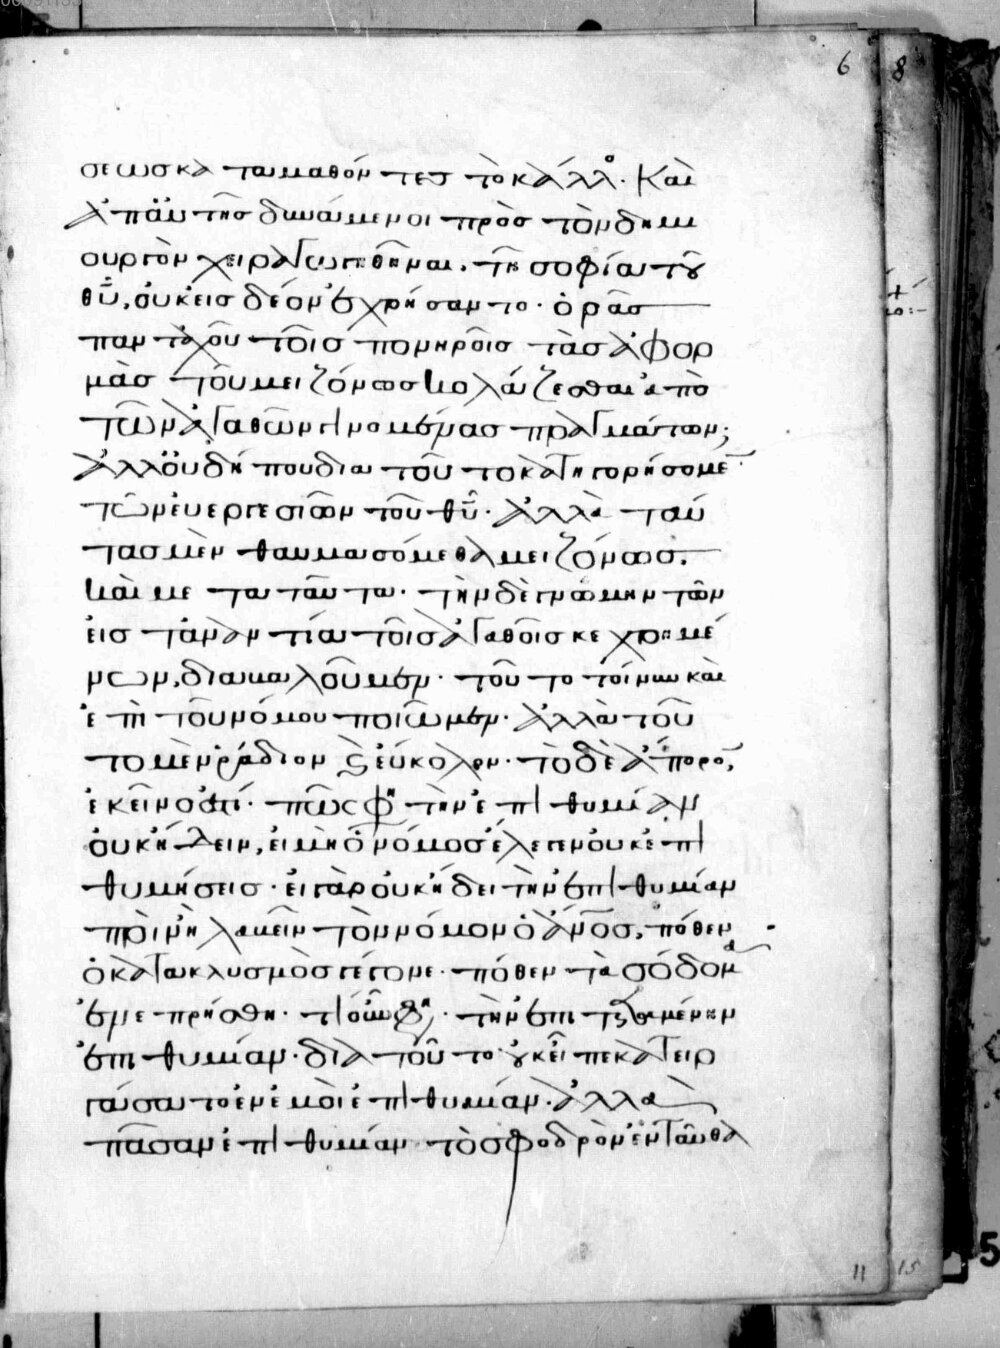 6 8
σεως καταμαθόντες τὸ κάλλο. Καὶ
ἀπ' αὐτῆς δυνάμενοι πρὸς τὸν δημι
ουργὸν χειραγωγηθῆναι, τῆ σοφία τοῦ
θῦ, οὐκ εἰς δέον ἐχρήσαντο· ὁρᾶς
πανταχοῦ τοῖς πονηροῖς τὰς ἀφορ
μὰς τοῦ μειζόνως κολάζεσθαι ἀπὸ
τῶν ἀγαθῶν γινομένας πραγμάτων;
ἀλλ' οὐ δήπου διὰ τοῦτο κατηγορήσομε
τῶν εὐεργεσιῶν τοῦ θῦ· ἀλλὰ ταύ
τας μὲν θαυμασόμεθα μειζόνως,
καὶ μετὰ ταῦτα· τὴν δὲ γνώμην τῶν
εἰς τἀναντία τοῖς ἀγαθοῖς κεχρημέ
νων, διακαλοῦμεν· τοῦτο τοίνυν καὶ
ἐπὶ τοῦ νόμου ποιῶμεν· ἀλλὰ τοῦ
το μὲν ῥάδιον καὶ εὔκολον· τὸ δὲ ἄπορο,
ἐκεῖνο ἐστί· πῶς φη τὴν ἐπιθυμίαν
οὐκ ἤδειν, εἰ μὴ ὁ νόμος ἔλεγεν οὐκ ἐπι
θυμήσεις· εἰ γὰρ οὐκ ἤδει τὴν ἐπιθυμίαν
πρὶν ἢ λαβεῖν τὸν νόμον ὁ ἄνος, πόθεν
ὁ κατακλυσμὸς γέγονε· πόθεν τὰ σόδομα
ἐνεπρήσθη· τὴν ἐπιτεταμένην
ἐπιθυμίαν· διὰ τοῦτο οὐκ εἶπε κατειρ
γάσατο ἐν ἐμοὶ ἐπιθυμίαν· ἀλλὰ
πᾶσαν ἐπιθυμίαν τὸ σφοδρὸν ἐνταῦθα
11 15
5